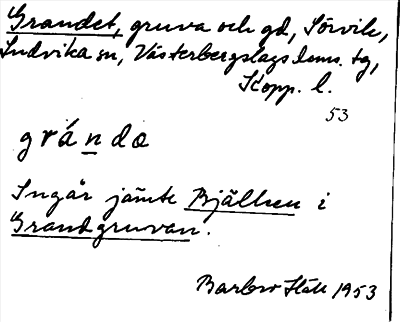 Grandet, gruva och gd, Sörvik,
Ludvika sn, Västerbergslags doms. tg,
Kopp. l.
53
grándə
Ingår jämte Bjällsen i
Grandgruvan.
Barbro Häll 1953